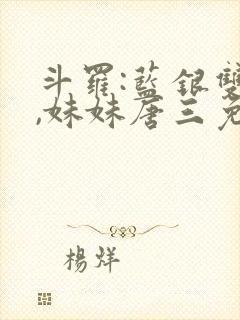 斗羅:藍銀雙
,妹妹唐三免
楊烊